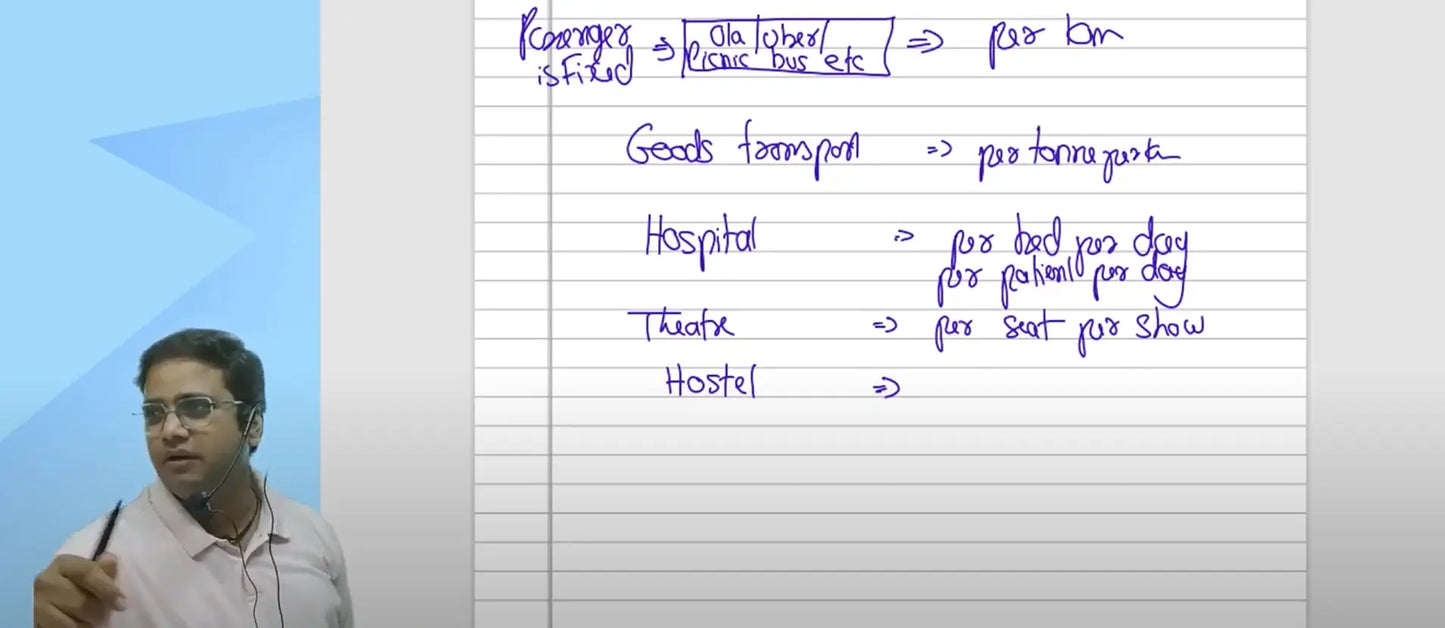 Passenger is Fixed => Ola/uber/ Picnic bus etc => per km
Goods transport => per tonne per km
Hospital => per bed per day
per patient per day
Theatre => per seat per show
Hostel =>